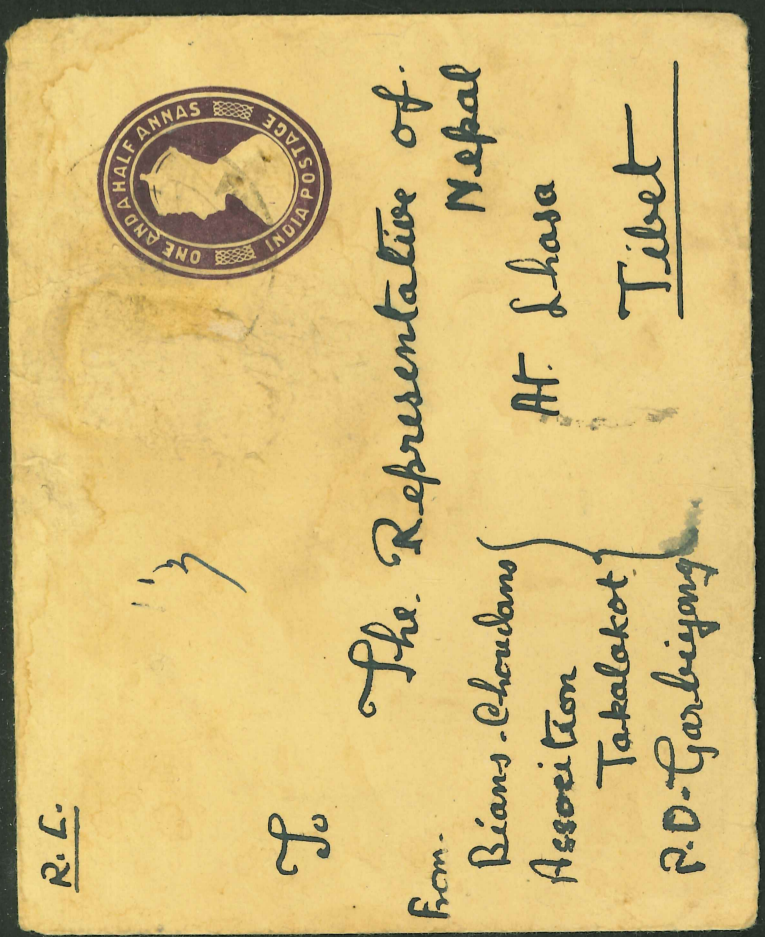 R. L.
ONE AND A HALF ANNAS
INDIA POSTAGE
To
The Representative of
Nepal
At Lhasa
Tibet
From.
Bians-Choudans
Assocition
Takalakot
P.O-Garbiyang